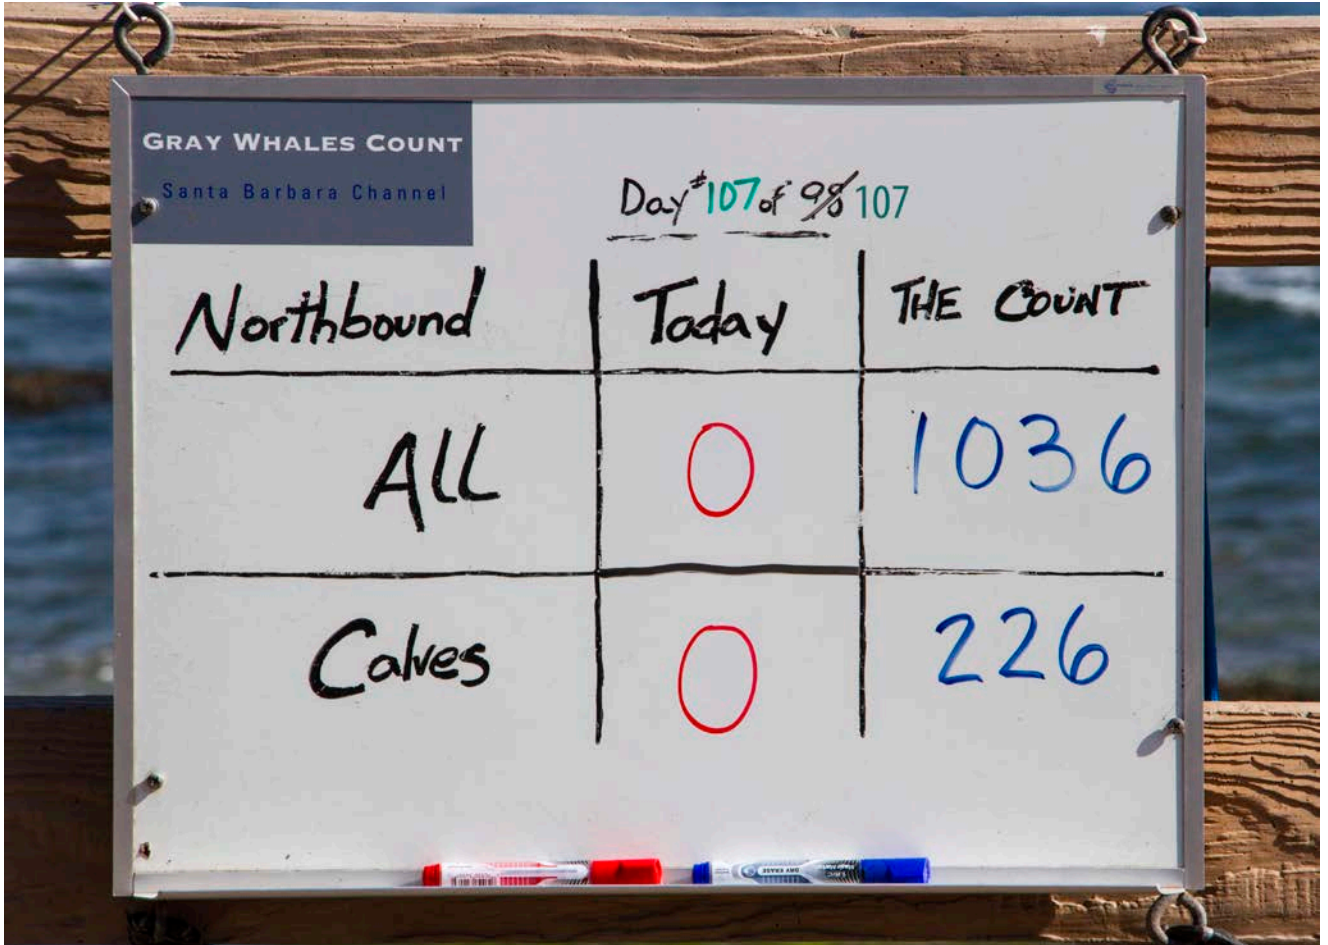 GRAY WHALES COUNT
Santa Barbara Channel
Day #107 of 98 107
Northbound Today THE COUNT
ALL 0 1036
Calves 0 226
DRY ERASE